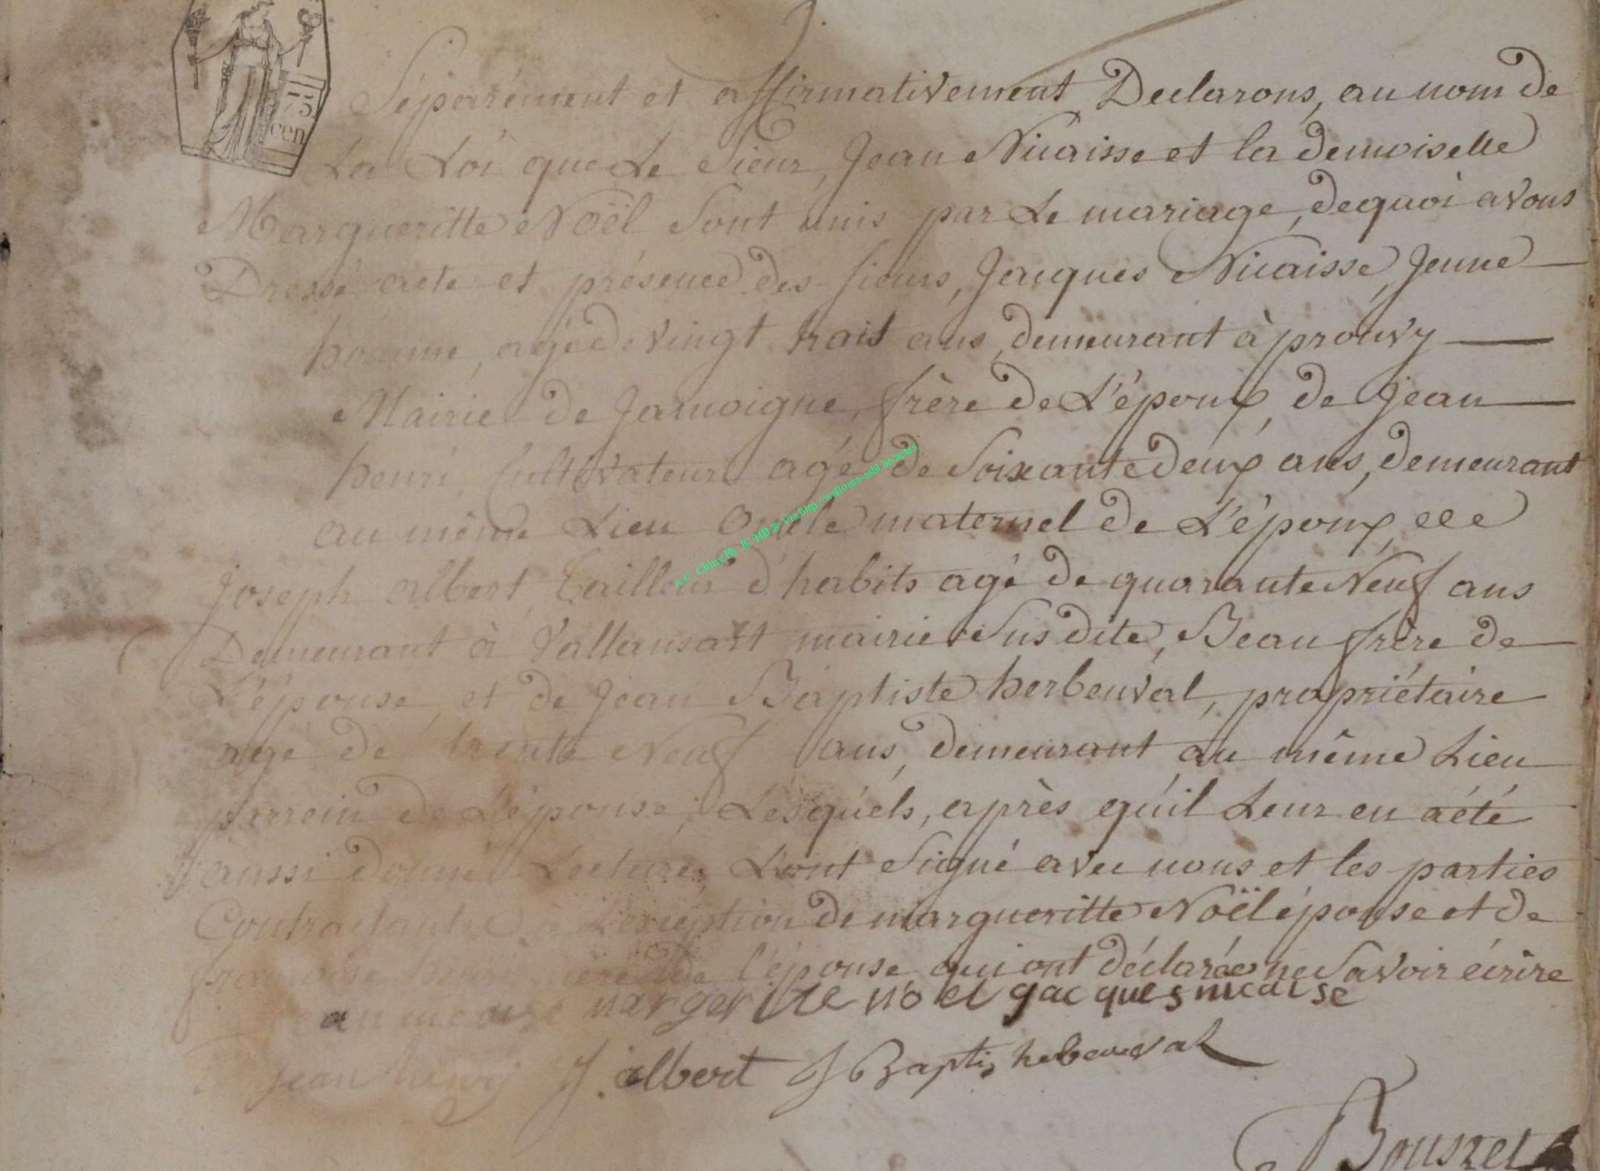 Séparément et affirmativement Declarons, au nom de
La Loi que Le Sieur, Jean Nicaisse et la demoiselle
Margueritte Noël Sont unis par Le mariage, de quoi avons
Dressé acte et présence des Sieurs, Jacques Nicaisse, Jeune
homme, agé de vingt trois ans, demeurant à prouvy
Mairie de Jamoigne, frère de L'époux, de Jean
henri, Cultivateur agé de Soixante deux ans, demeurant
au même Lieu Oncle maternel de L'époux, de
Joseph albert, tailleur d'habits agé de quarante Neuf ans
Demeurant à Vallansart mairie Susdite, Beau frère de
L'épouse, et de Jean Baptiste herbeuval, propriétaire
agé de trente Neuf ans, demeurant au même Lieu
parrein de L'épouse; Lesquels, après qu'il Leur en a été
aussi donné Lecture, L'ont Signé avec nous et les parties
Contractante à L'exception de margueritte Noël épouse et de
mère de l'épouse qui ont déclarée ne Savoir écrire
margerite noel gacques nicaise
Jean henry J. albert J Baptis hebeuval
Bousret